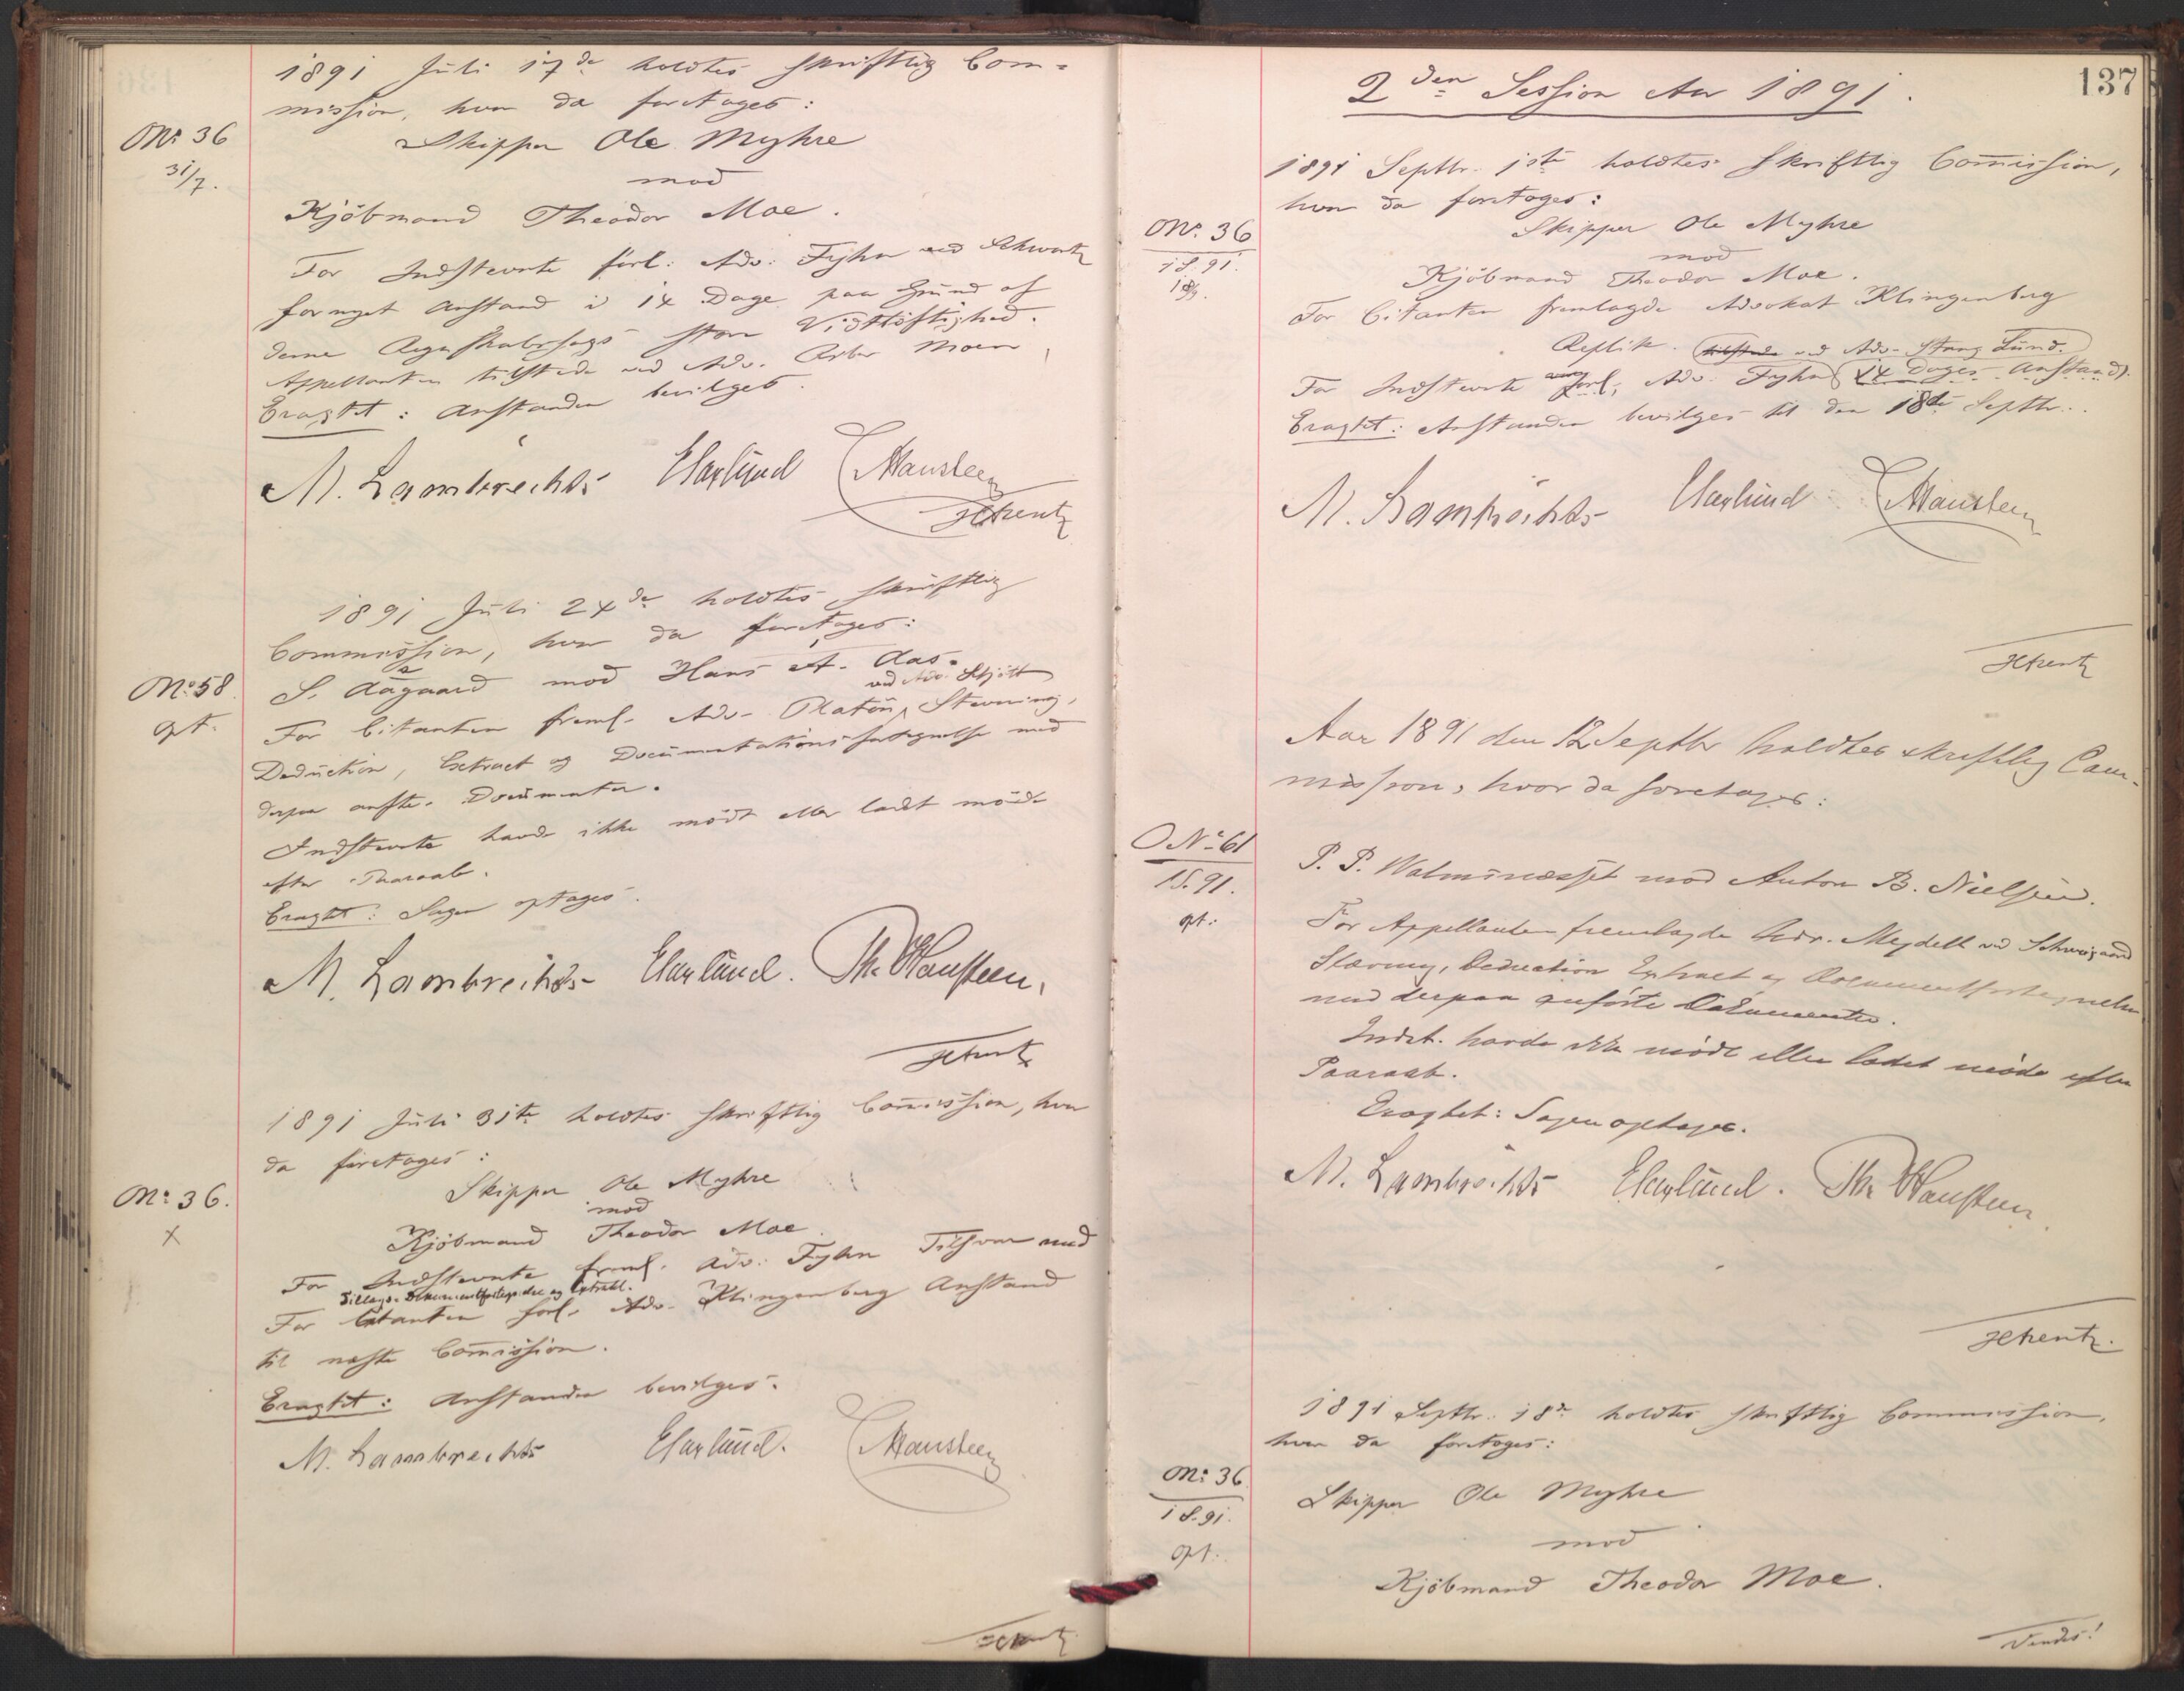 1891 Juli 17de holdtes skriftlig Com=
mission, hvor da foretoges:
No: 36
31/7.
Skipper Ole Myhre
mod
Kjöbmand Theodor Moe.
For Indstevnte forl: Adv: Fyhn ved Schwartz
fornyet Anstand i 14 Dage paa Grund af
denne Regnskabssags store Vidtlöftighed.
Appellanten tilstede ved Adv.
Eragtet: Anstanden bevilges.
M. Lambrechts Haxlund Hansteen
1891 Juli 24de holdtes skriftlig
Commission, hvor da foretoges:
No: 58
opt.
S. Aagaard mod Hans A. Aas.
ved Adv. Skjött
For Citanten freml. Adv. Platou, Stevning,
Deduction, Extract og Documentationsfortegnelse med
derpaa anfte. Documenter.
Indstevnte havde ikke mödt eller ladet möde
efter Paaraab.
Eragtet: Sagen optages.
M. Lambrechts Haxlund. Th. Hansteen.
1891 Juli 31te holdtes skriftlig Commission, hvor
da foretoges:
No: 36.
x
Skipper Ole Myhre
mod
Kjöbmand Theodor Moe.
For Indstevnte freml. Adv: Fyhn Tilsvar med
Tillægs-Dokumentfortegnelse og Extrakt.
For Citanten forl. Adv. Klingenberg Anstand
til næste Commission.
Eragtet: Anstanden bevilges.
M. Lambrechts Haxlund. Hansteen
137
2den Session Aar 1891.
1891 Septbr. 1ste holdtes skriftlig Commission,
hvor da foretoges:
No. 36
1 S. 91.
18/9.
Skipper Ole Myhre
mod
Kjöbmand Theodor Moe.
For Citanten fremlagde Advokat Klingenberg
Replik. tilstede ved Adv. Stang Lund.
For Indstevnte forl. Adv. Fyhn 14 Dages Anstand.
Eragtet: Anstanden bevilges til den 18de Septbr.
M. Lambrechts Haxlund Hansteen
Aar 1891 den 12 Septbr holdtes skriftlig Com-
mission, hvor da foretoges:
No: 61
1 S. 91.
opt:
P. P. Walmsnæsset mod Anton B. Nielsen.
For Appellanten fremlagde Adv. Meydell ved Schweigaard
Stævning, Deduction Extract og Documentfortegnelse
med derpaa anförte Dokumenter.
Indst. havde ikke mödt eller ladet möde efter
Paaraab.
Eragtet: Sagen optages.
M. Lambrechts Haxlund. Th. Hansteen.
1891 Septbr. 18de holdtes skriftlig Commission,
hvor da foretoges:
No: 36
1 S. 91.
opt.
Skipper Ole Myhre
mod
Kjöbmand Theodor Moe.
Vendes!